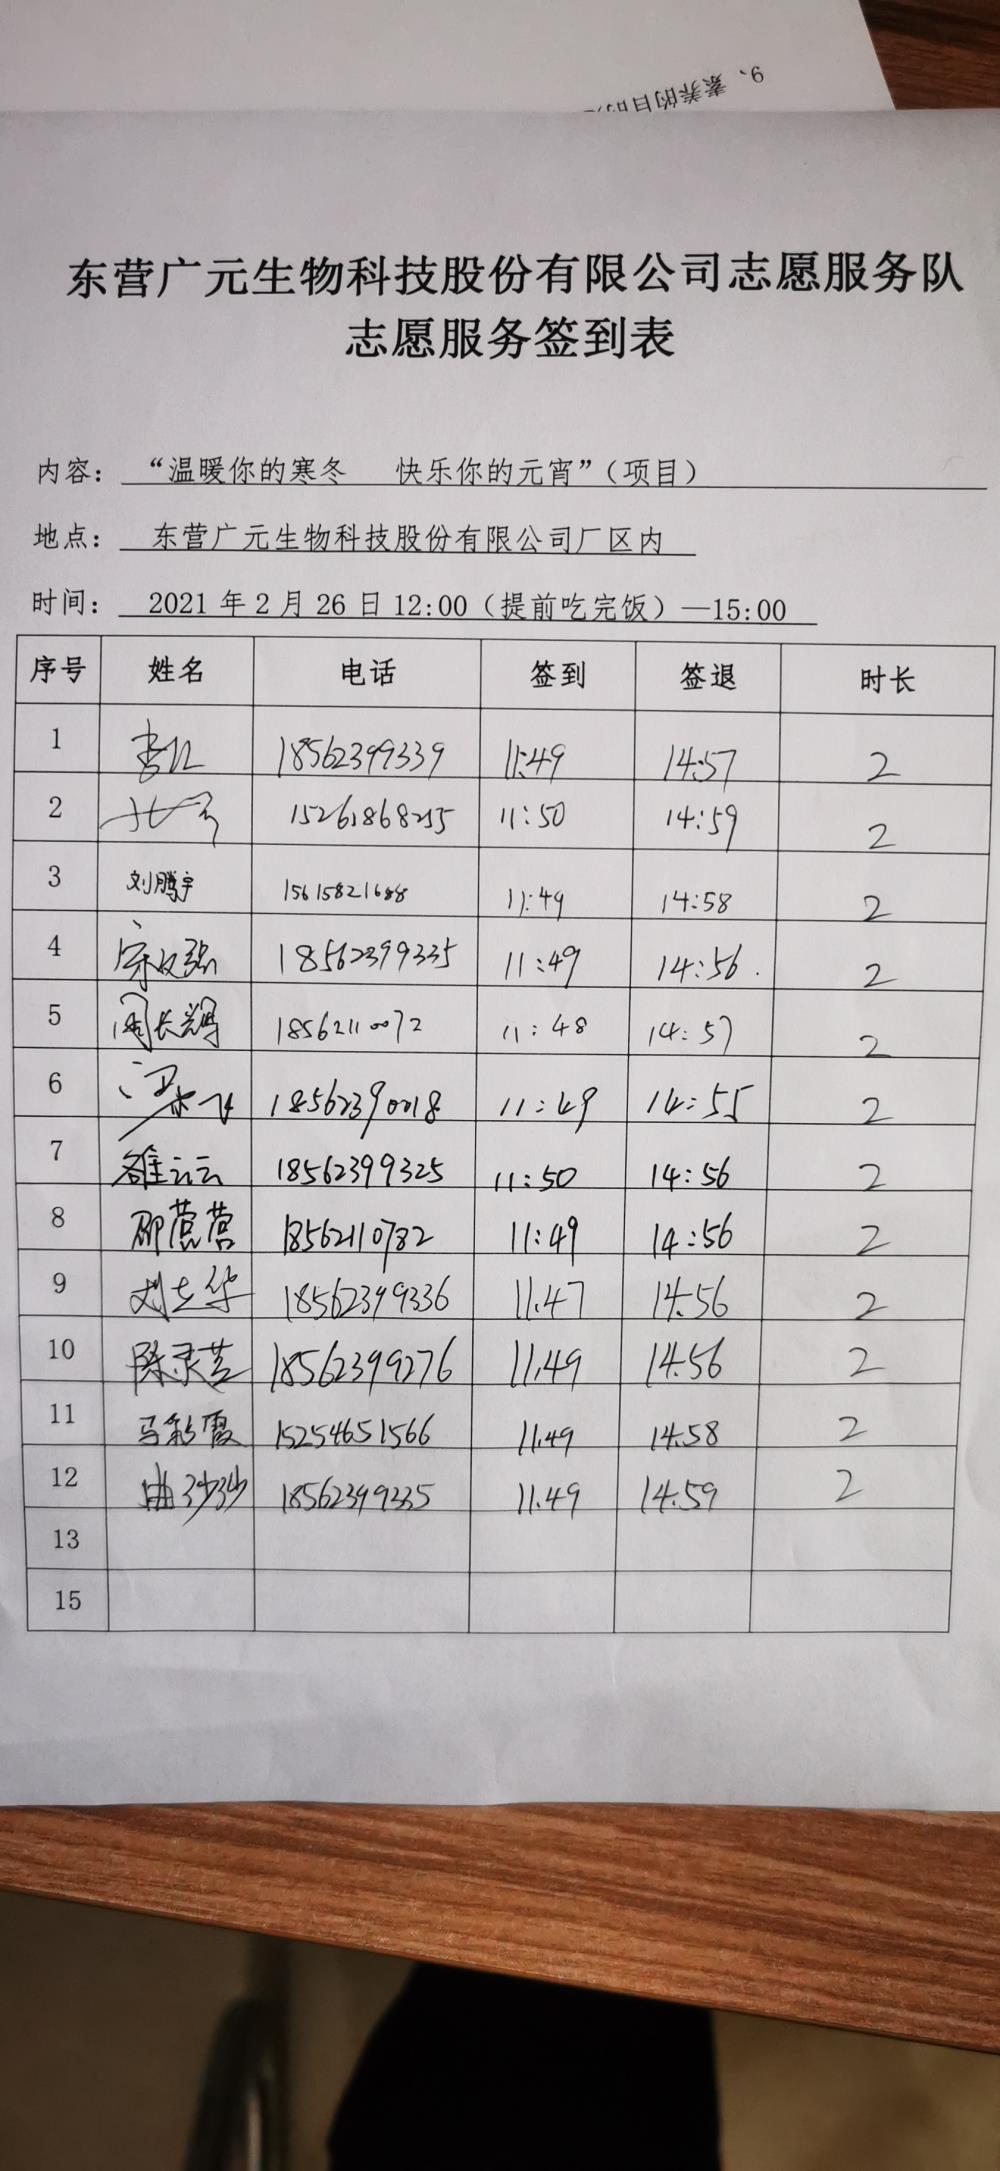 9、素养的目的
东营广元生物科技股份有限公司志愿服务队
志愿服务签到表
内容： “温暖你的寒冬 快乐你的元宵”（项目）
地点： 东营广元生物科技股份有限公司厂区内
时间： 2021 年 2 月 26 日 12:00（提前吃完饭）—15:00
序号 姓名 电话 签到 签退 时长
1 18562399339 11:49 14:57 2
2 11:50 14:59 2
3 刘鹏宇 15615821688 11:49 14:58 2
4 18562399335 11:49 14:56 2
5 周长辉 18562110072 11:48 14:57 2
6 11:49 14:55 2
7 雒云云 18562399325 11:50 14:56 2
8 邵营营 18562110782 11:49 14:56 2
9 刘立华 18562399336 11.47 14:56 2
10 陈灵芝 18562399276 11:49 14:56 2
11 马彩霞 15254651566 11.49 14.58 2
12 曲沙沙 18562399335 11.49 14.59 2
13
15